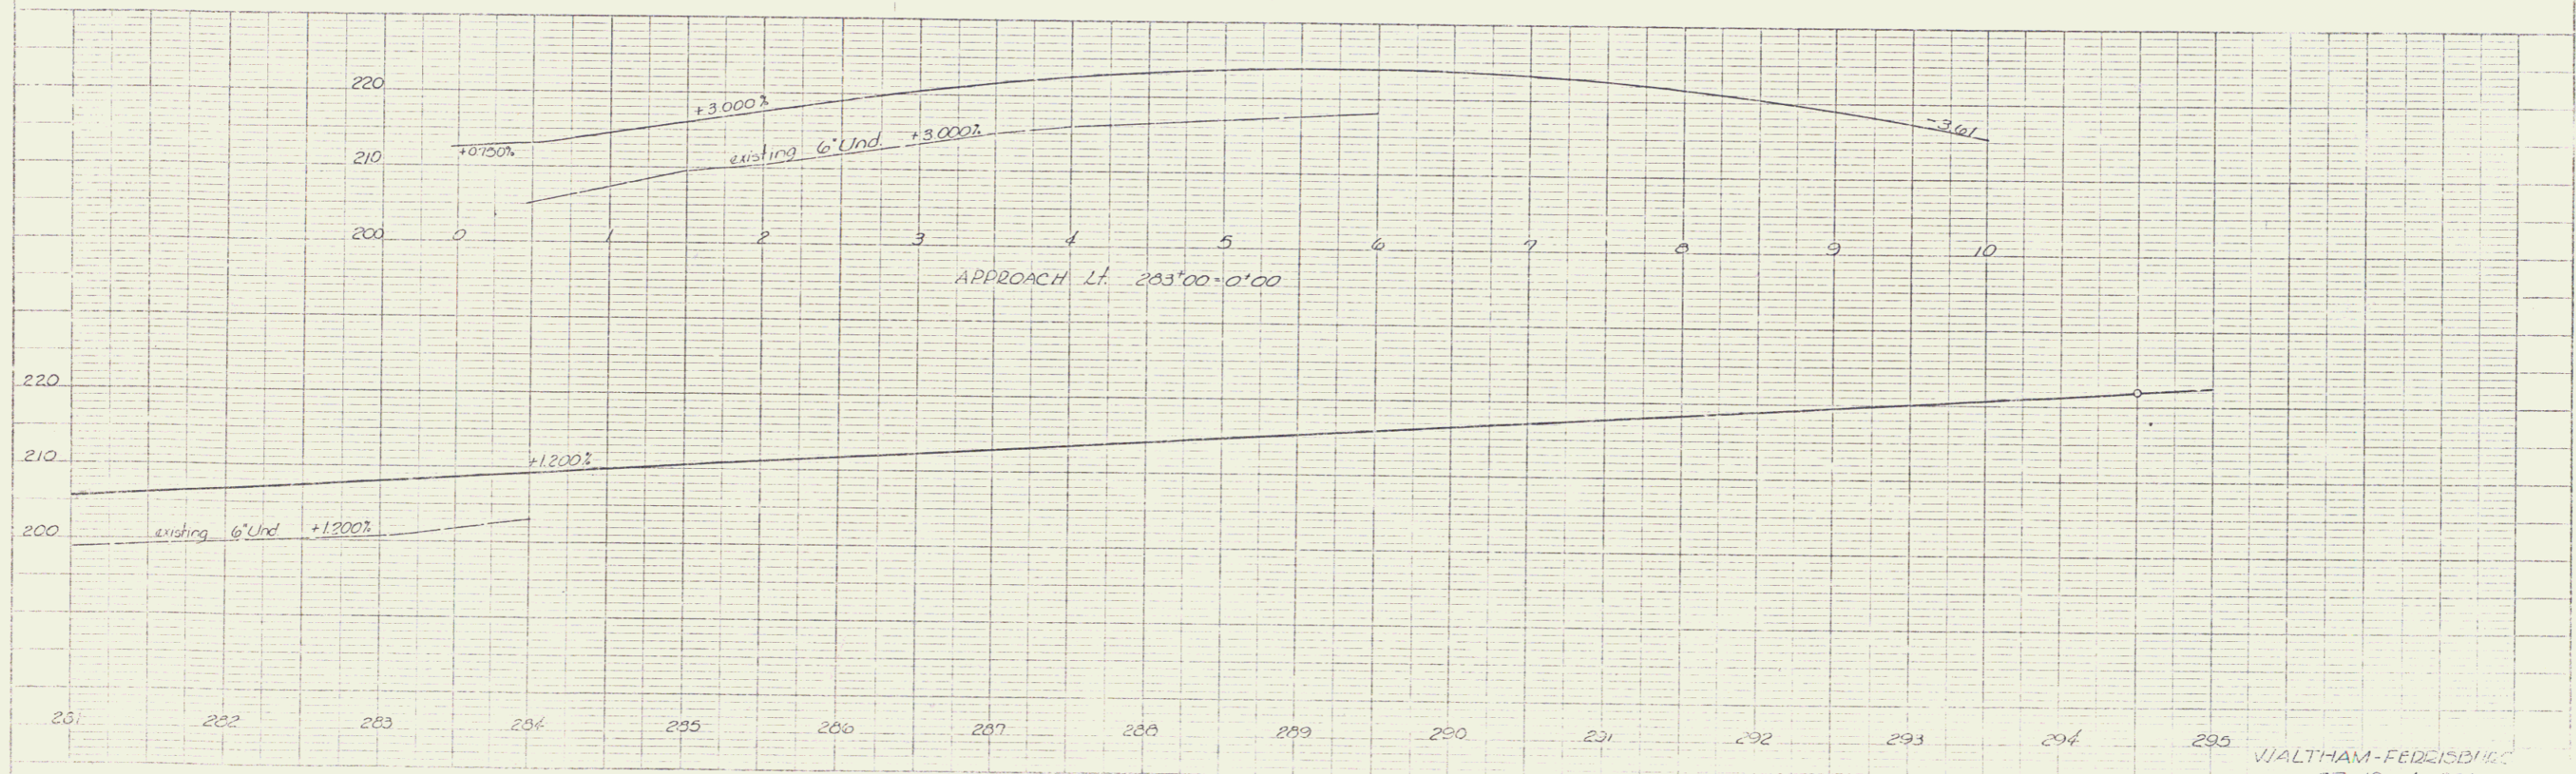 220
+3.000%
-3.61
+0.750%
210
existing 6" Und. +3.000%
200 0 1 2 3 4 5 6 7 8 9 10
APPROACH Lt. 283+00=0+00
220
210
+1.200%
200
existing 6" Und +1.200%
281 282 283 284 285 286 287 288 289 290 291 292 293 294 295